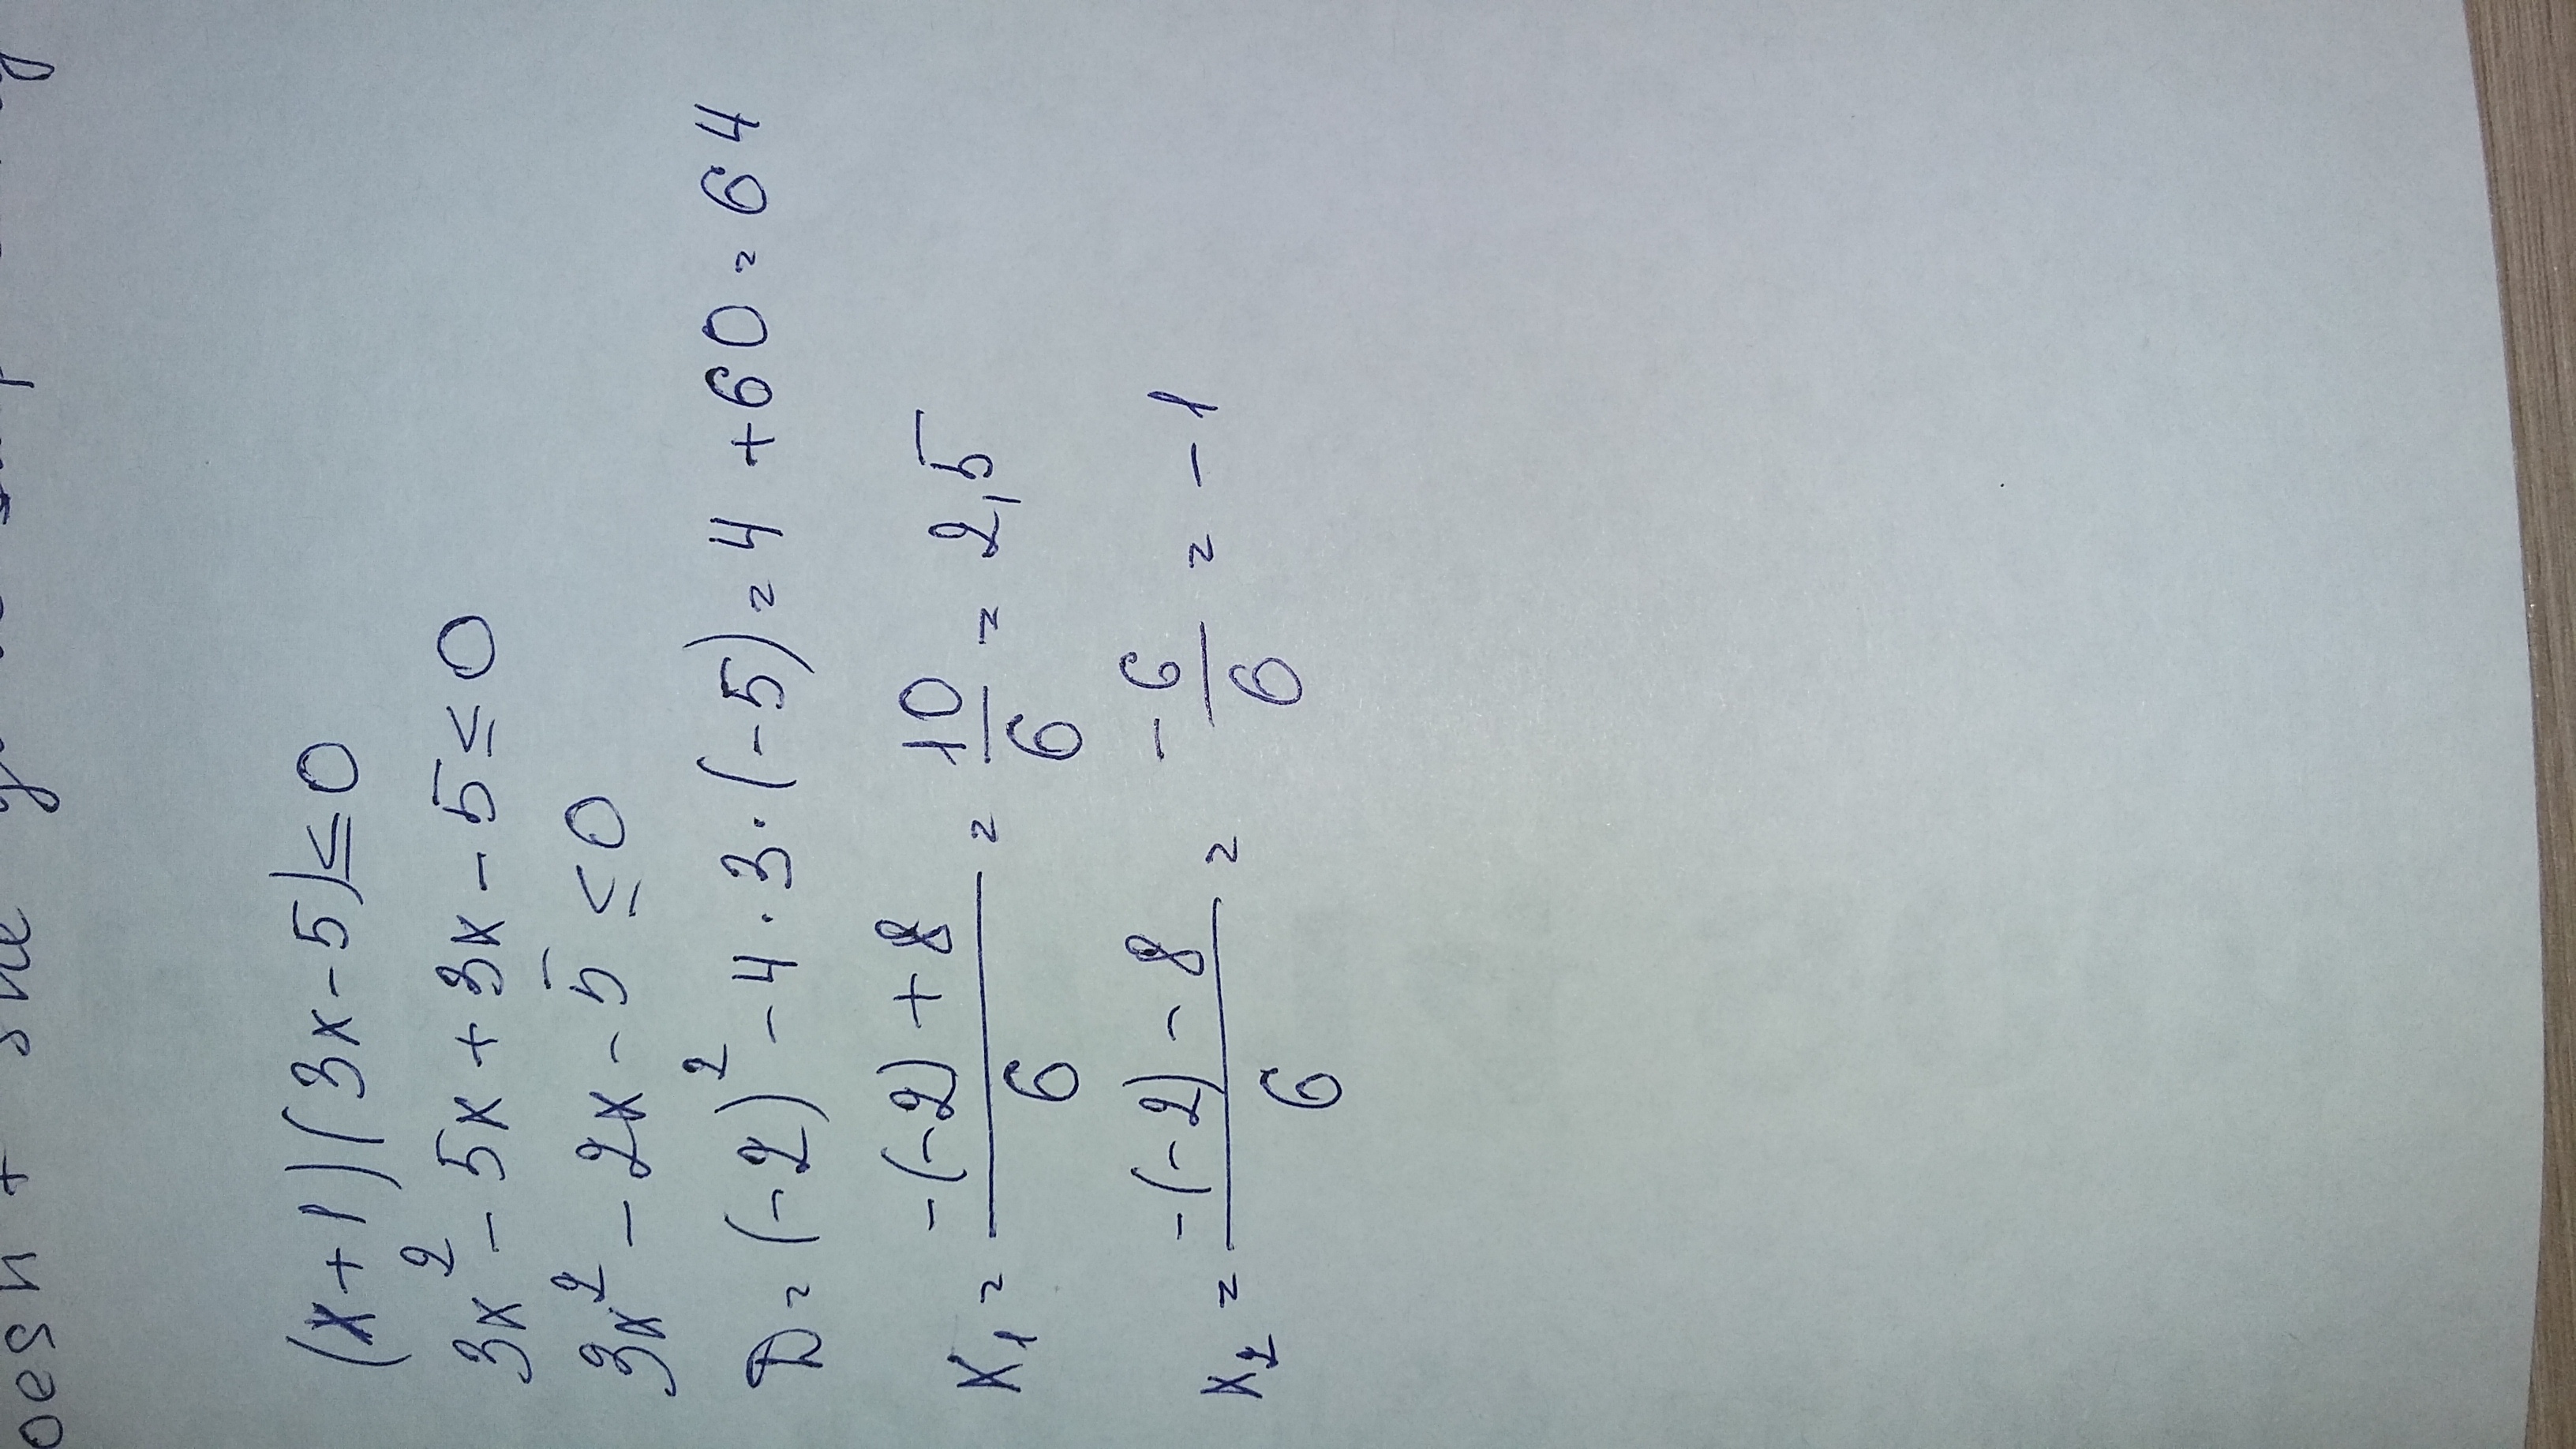 oesn't she
(x+1)(3x-5)≤0
3x²-5x+3x-5≤0
3x²-2x-5≤0
D=(-2)²-4·3·(-5)=4+60=64
x₁=(-(-2)+8)/6=10/6=2,5
x₂=(-(-2)-8)/6=-6/6=-1